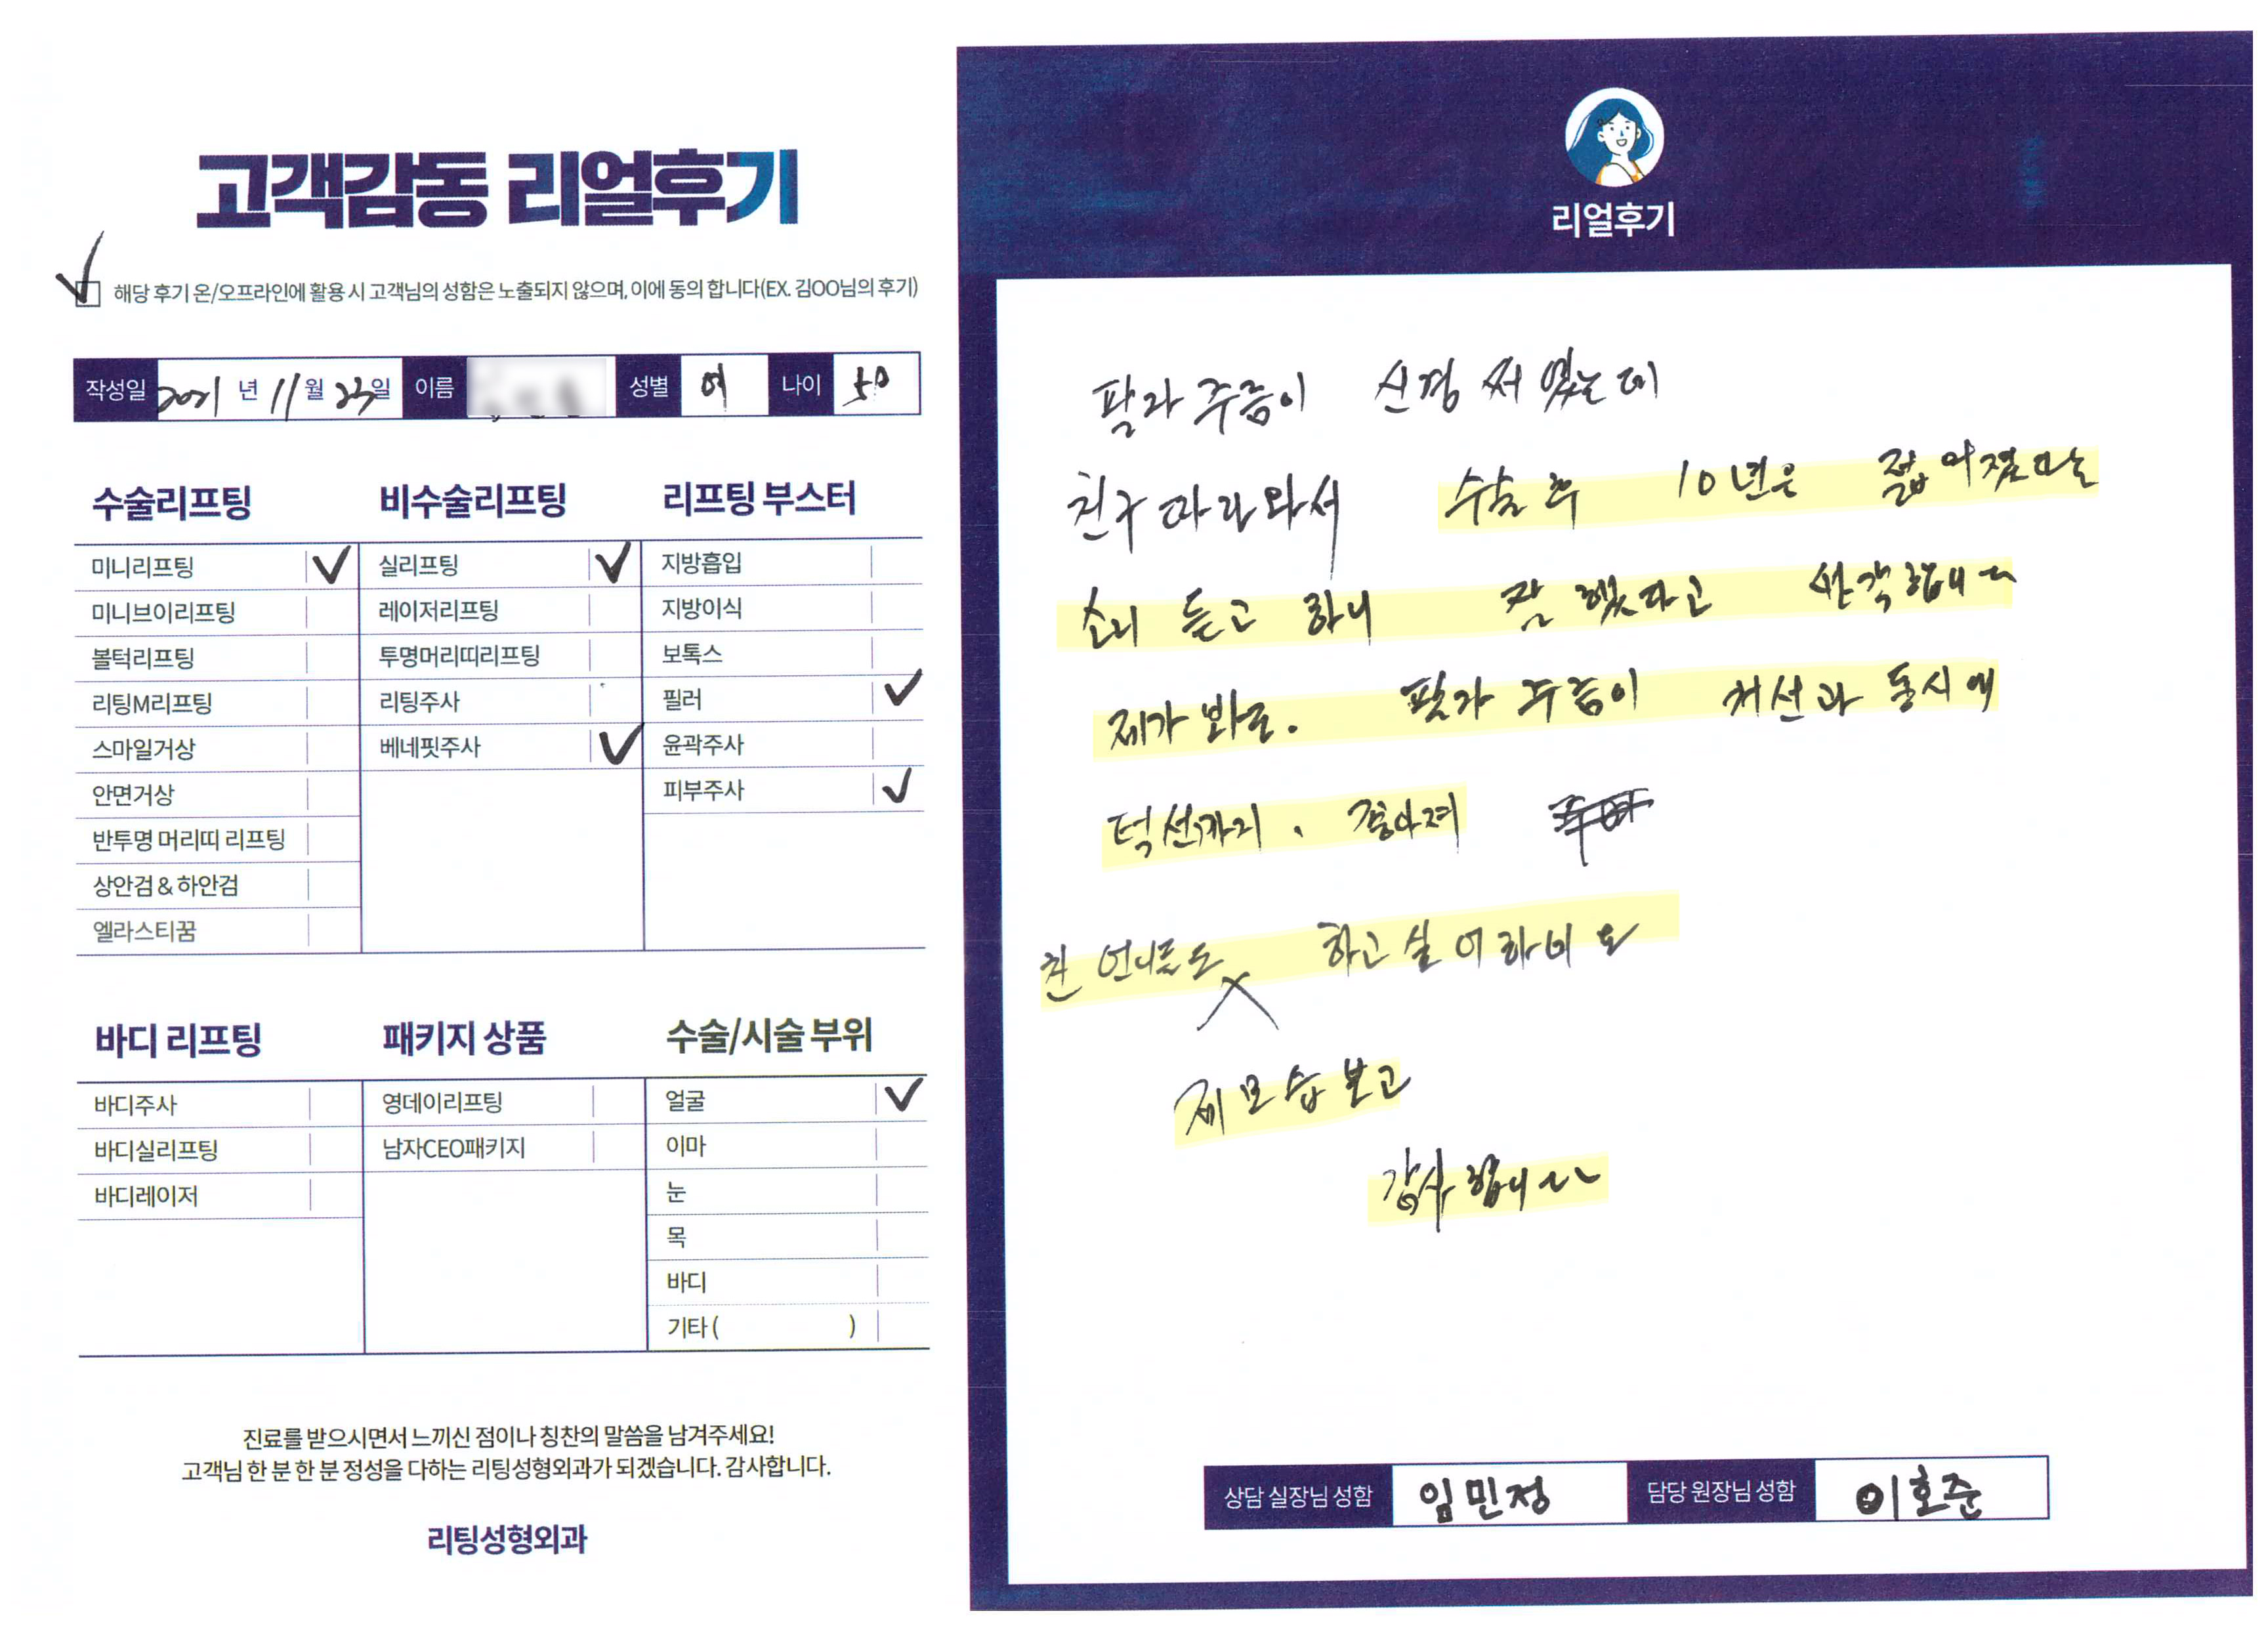 고객감동 리얼후기
해당 후기 온/오프라인에 활용 시 고객님의 성함은 노출되지 않으며, 이에 동의 합니다(EX. 김OO님의 후기)
작성일 2021 년 11 월 23 일 이름 성별 여 나이 50
수술리프팅
미니리프팅
미니브이리프팅
볼턱리프팅
리팅M리프팅
스마일거상
안면거상
반투명 머리띠 리프팅
상안검 & 하안검
엘라스티꿈
비수술리프팅
실리프팅
레이저리프팅
투명머리띠리프팅
리팅주사
베네핏주사
리프팅 부스터
지방흡입
지방이식
보톡스
필러
윤곽주사
피부주사
바디 리프팅
바디주사
바디실리프팅
바디레이저
패키지 상품
영데이리프팅
남자CEO패키지
수술/시술 부위
얼굴
이마
눈
목
바디
기타 ( )
진료를 받으시면서 느끼신 점이나 칭찬의 말씀을 남겨주세요!
고객님 한 분 한 분 정성을 다하는 리팅성형외과가 되겠습니다. 감사합니다.
리팅성형외과
리얼후기
팔자 주름이 신경 써 있는데
친구 따라와서 수술 후 10년은 젊어졌다는
소리 듣고 하니 잘 했다고 생각합니다
제가 봐도. 팔자 주름이 개선과 동시에
턱선까지. 좋아져
친 언니들도 하고 싶어하네요
제 모습 보고
감사합니다
상담 실장님 성함 임민정 담당 원장님 성함 이호준